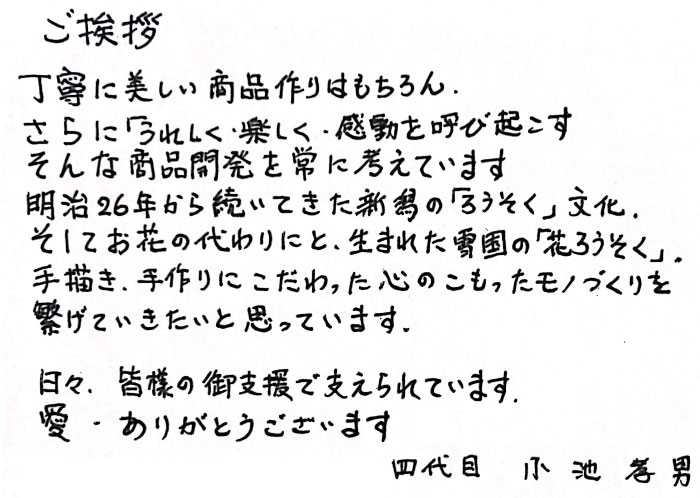 ご挨拶
丁寧に美しい商品作りはもちろん.
さらに「うれしく・楽しく・感動を呼び起こす
そんな商品開発を常に考えています
明治26年から続いてきた新潟の「ろうそく」文化.
そしてお花の代わりにと、生まれた雪国の「花ろうそく」.
手描き、手作りにこだわった心のこもったモノづくりを
繋げていきたいと思っています.
日々、皆様の御支援で支えられています.
愛・ありがとうございます
四代目 小池孝男